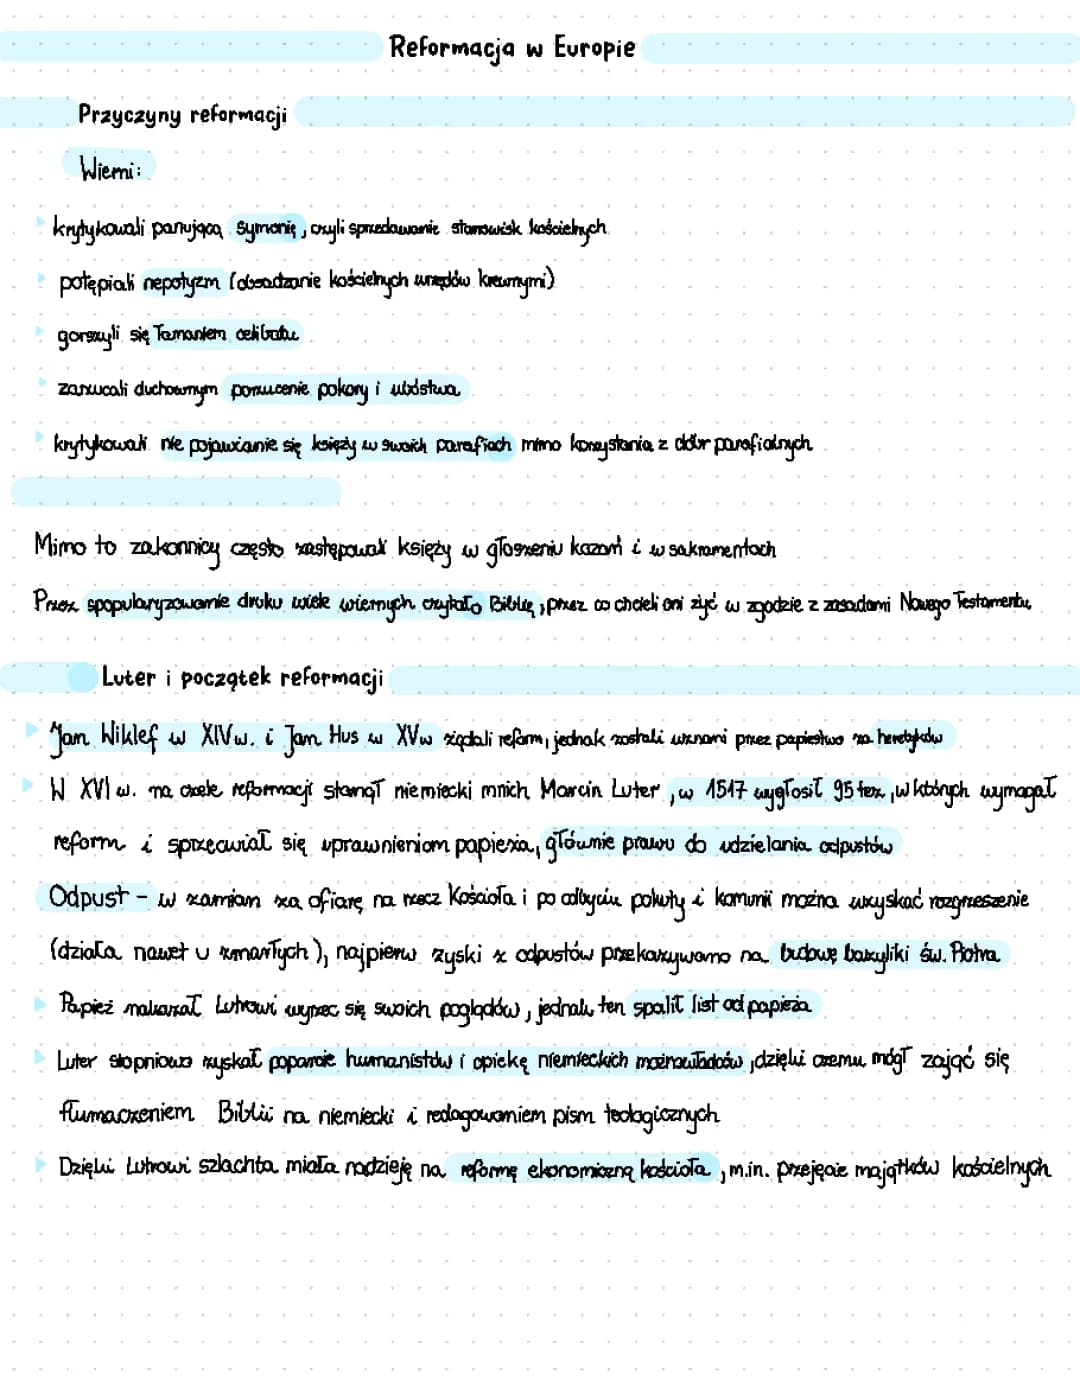 Reformacja w Europie
Przyczyny reformacji
Wierni:
krytykowali panującą symonię, czyli sprzedawanie stanowisk kościelnych
potępiali nepotyzm (obsadzanie kościelnych urzędów krewnymi)
gorszyli się łamaniem celibatu
zarzucali duchownym porzucenie pokory i ubóstwa
krytykowali nie pojawianie się księży w swoich parafiach mimo korzystania z dóbr parafialnych
Mimo to zakonnicy często zastępowali księży w głoszeniu kazań i w sakramentach
Przez spopularyzowanie druku wiele wiernych czytało Biblię, przez co chcieli oni żyć w zgodzie z zasadami Nowego Testamentu
Luter i początek reformacji
Jan Wiklef w XIVw. i Jan Hus w XVw żądali reform, jednak zostali uznani przez papiestwo za heretyków
W XVI w. na czele reformacji stanął niemiecki mnich Marcin Luter, w 1517 wygłosił 95 tez, w których wymagał
reform i sprzeciwiał się uprawnieniom papieża, głównie prawu do udzielania odpustów
Odpust - w zamian za ofiarę na rzecz Kościoła i po odbyciu pokuty i komunii można uzyskać rozgrzeszenie
(działa nawet u zmarłych), najpierw zyski z odpustów przekazywano na budowę bazyliki św. Piotra
Papież nakazał Lutrowi wyrzec się swoich poglądów, jednak ten spalił list od papieża
Luter stopniowo zyskał poparcie humanistów i opiekę niemieckich możnowładców, dzięki czemu mógł zająć się
tłumaczeniem Biblii na niemiecki i redagowaniem pism teologicznych
Dzięki Lutrowi szlachta miała nadzieję na reformę ekonomiczną kościoła, m.in. przejęcie majątków kościelnych